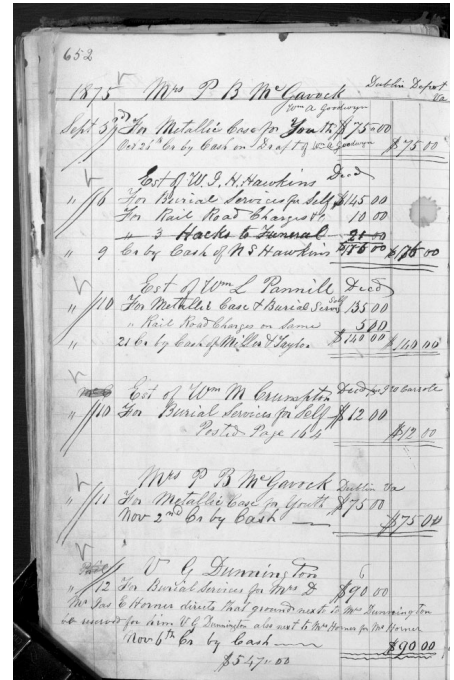 652
1875 Mrs P B McGavock Dublin Depot Va
Wm A Goodwyn
Sept 5 9th For Metallic Case for Youth $75.00
Oct 21st Cr by Cash on Draft of Wm A Goodwyn $75.00
Est of W. J. H. Hawkins Decd
" 6 For Burial Services for Self $145.00
For Rail Road Charges 10 00
" 3 Hacks to Funeral 21 00
" 9 Cr by Cash of N S Hawkins
Est of Wm L Pannill Decd
" 10 For Metallic Case & Burial Servs Self 135.00
" Rail Road Charges on Same 5 00
21 Cr by Cash of Miller & Taylor $140.00 $140.00
Est of Wm M Crumpton Decd
" 10 For Burial Services for Self $12 00
Posted Page 164 $12 00
Mrs P B McGavock Dublin Va
" 11 For Metallic Case for Youth $75 00
Nov 2nd Cr by Cash $75.00
V G Dunnington
" 12 For Burial Services for Mrs D $90 00
Mr Jas E Horner directs that ground next to Mrs Dunnington
be reserved for him V G Dunnington also next to Mrs Horner for Mr Horner
Nov 6th Cr by Cash $90.00
$547.00